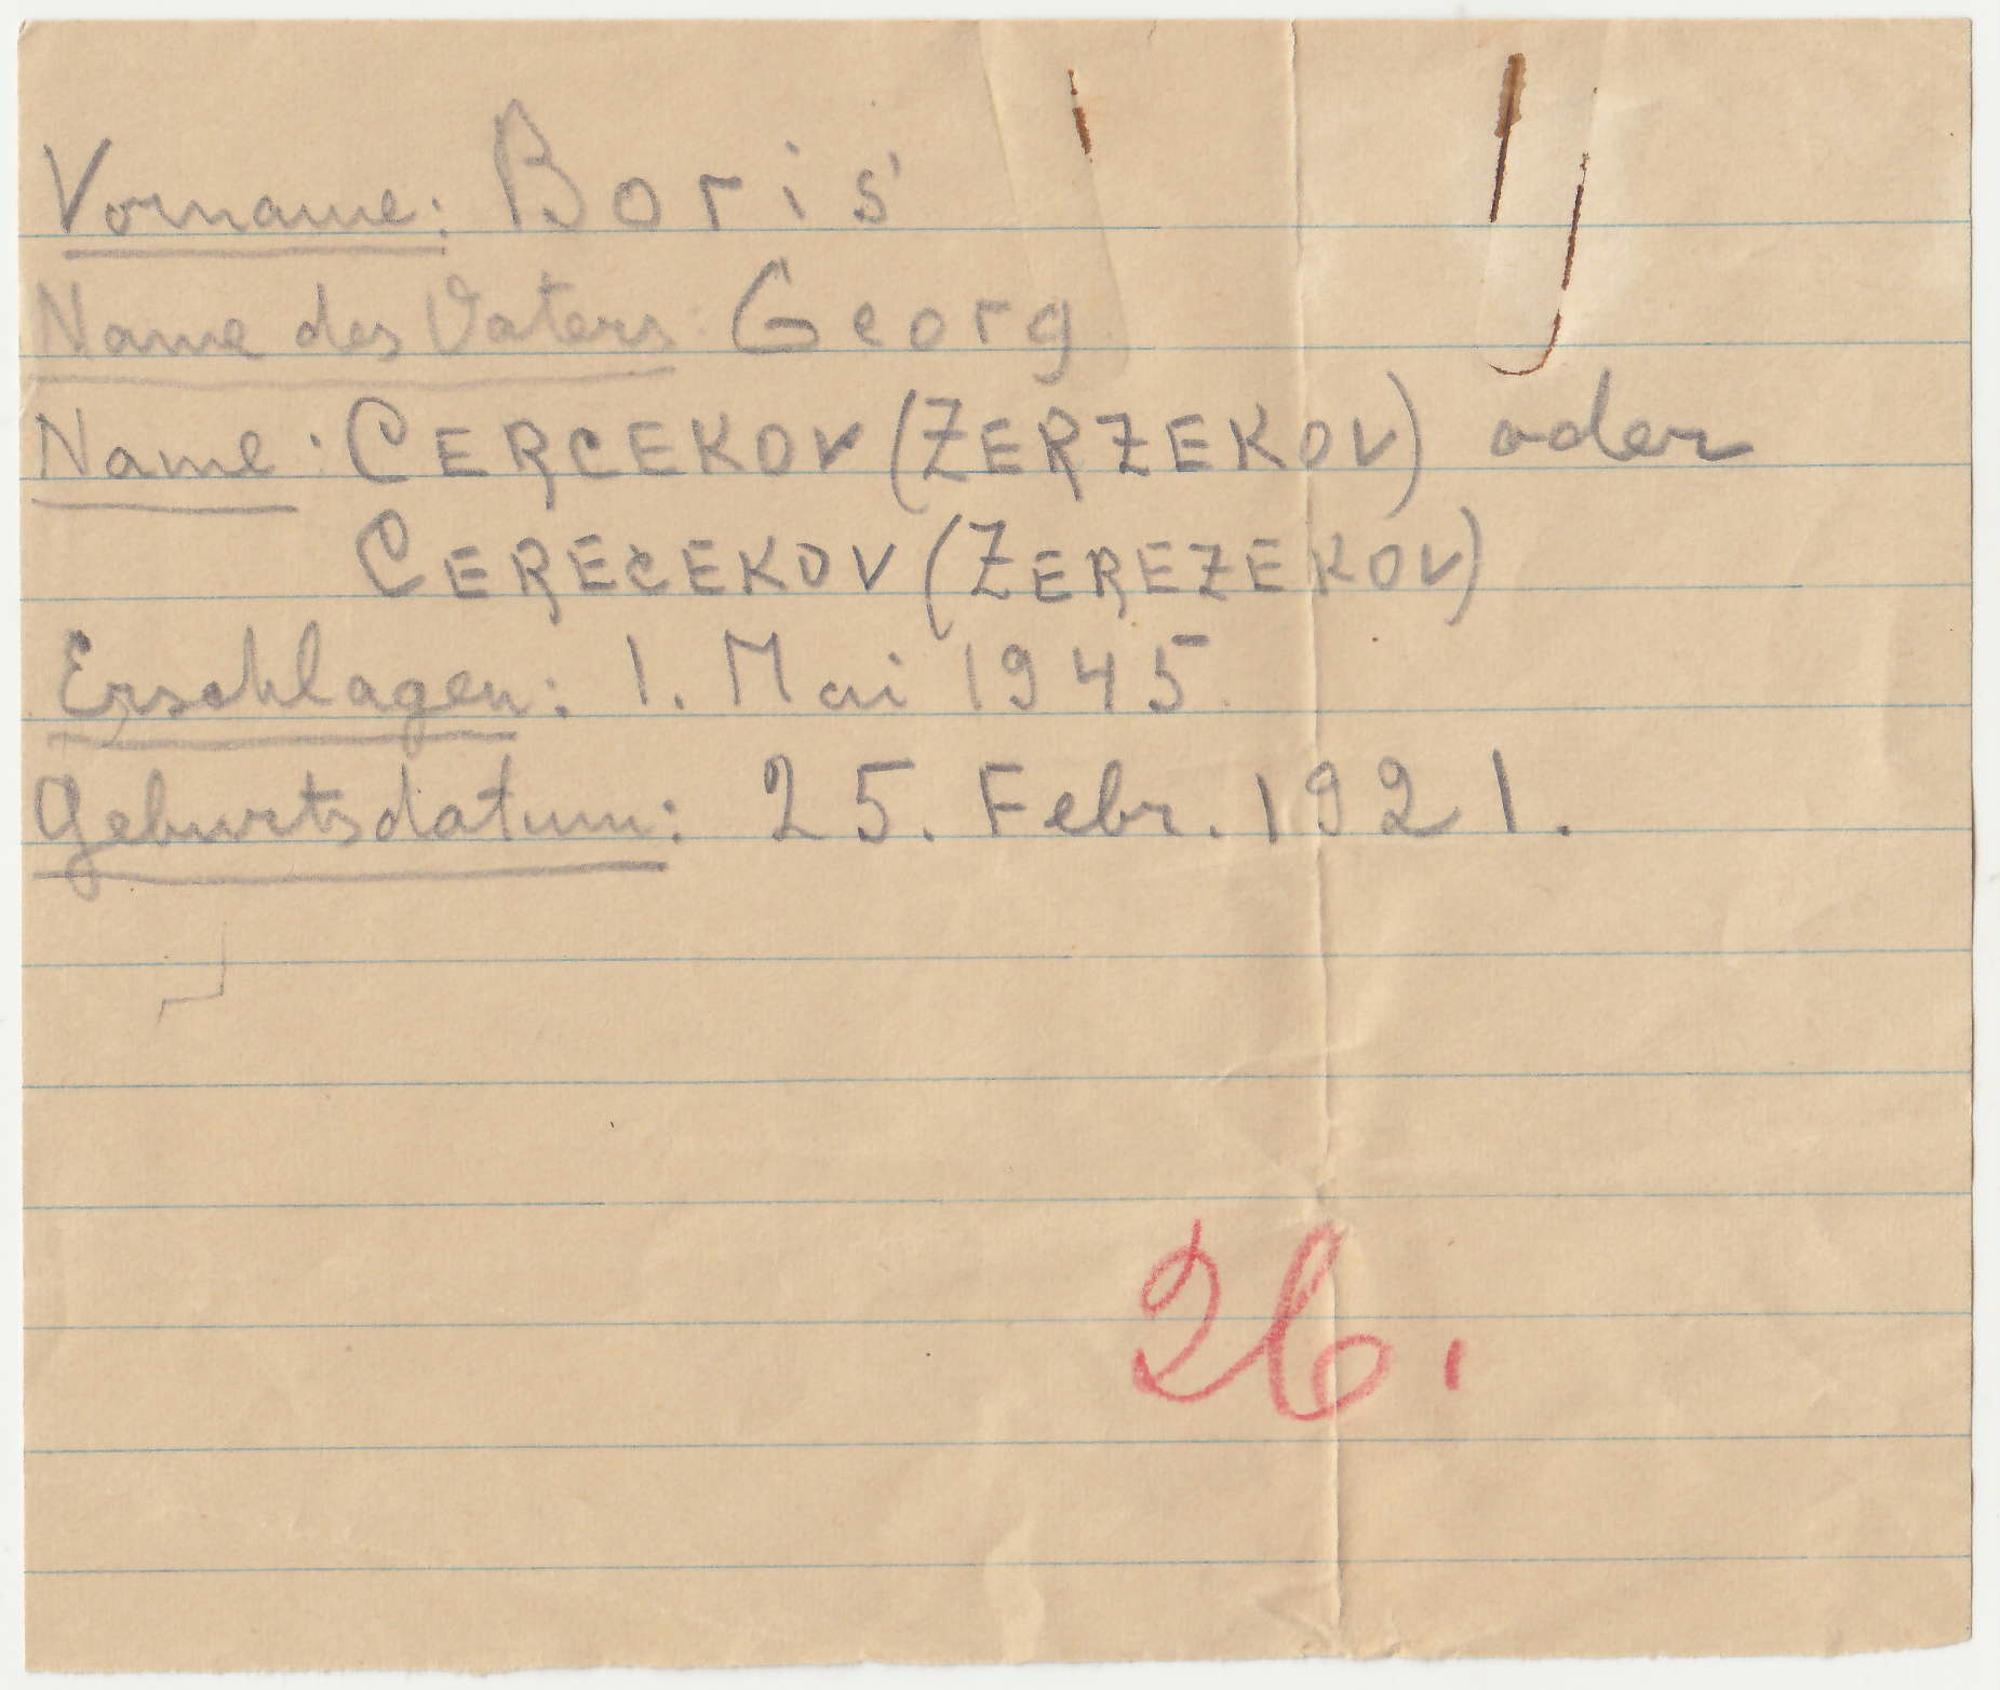 Vorname: Boris
Name des Vaters: Georg
Name: CERCEKOV (ZERZEKOV) oder
CERECEKOV (ZEREZEKOV)
Erschlagen: 1. Mai 1945.
Geburtsdatum: 25. Febr. 1921.
26.